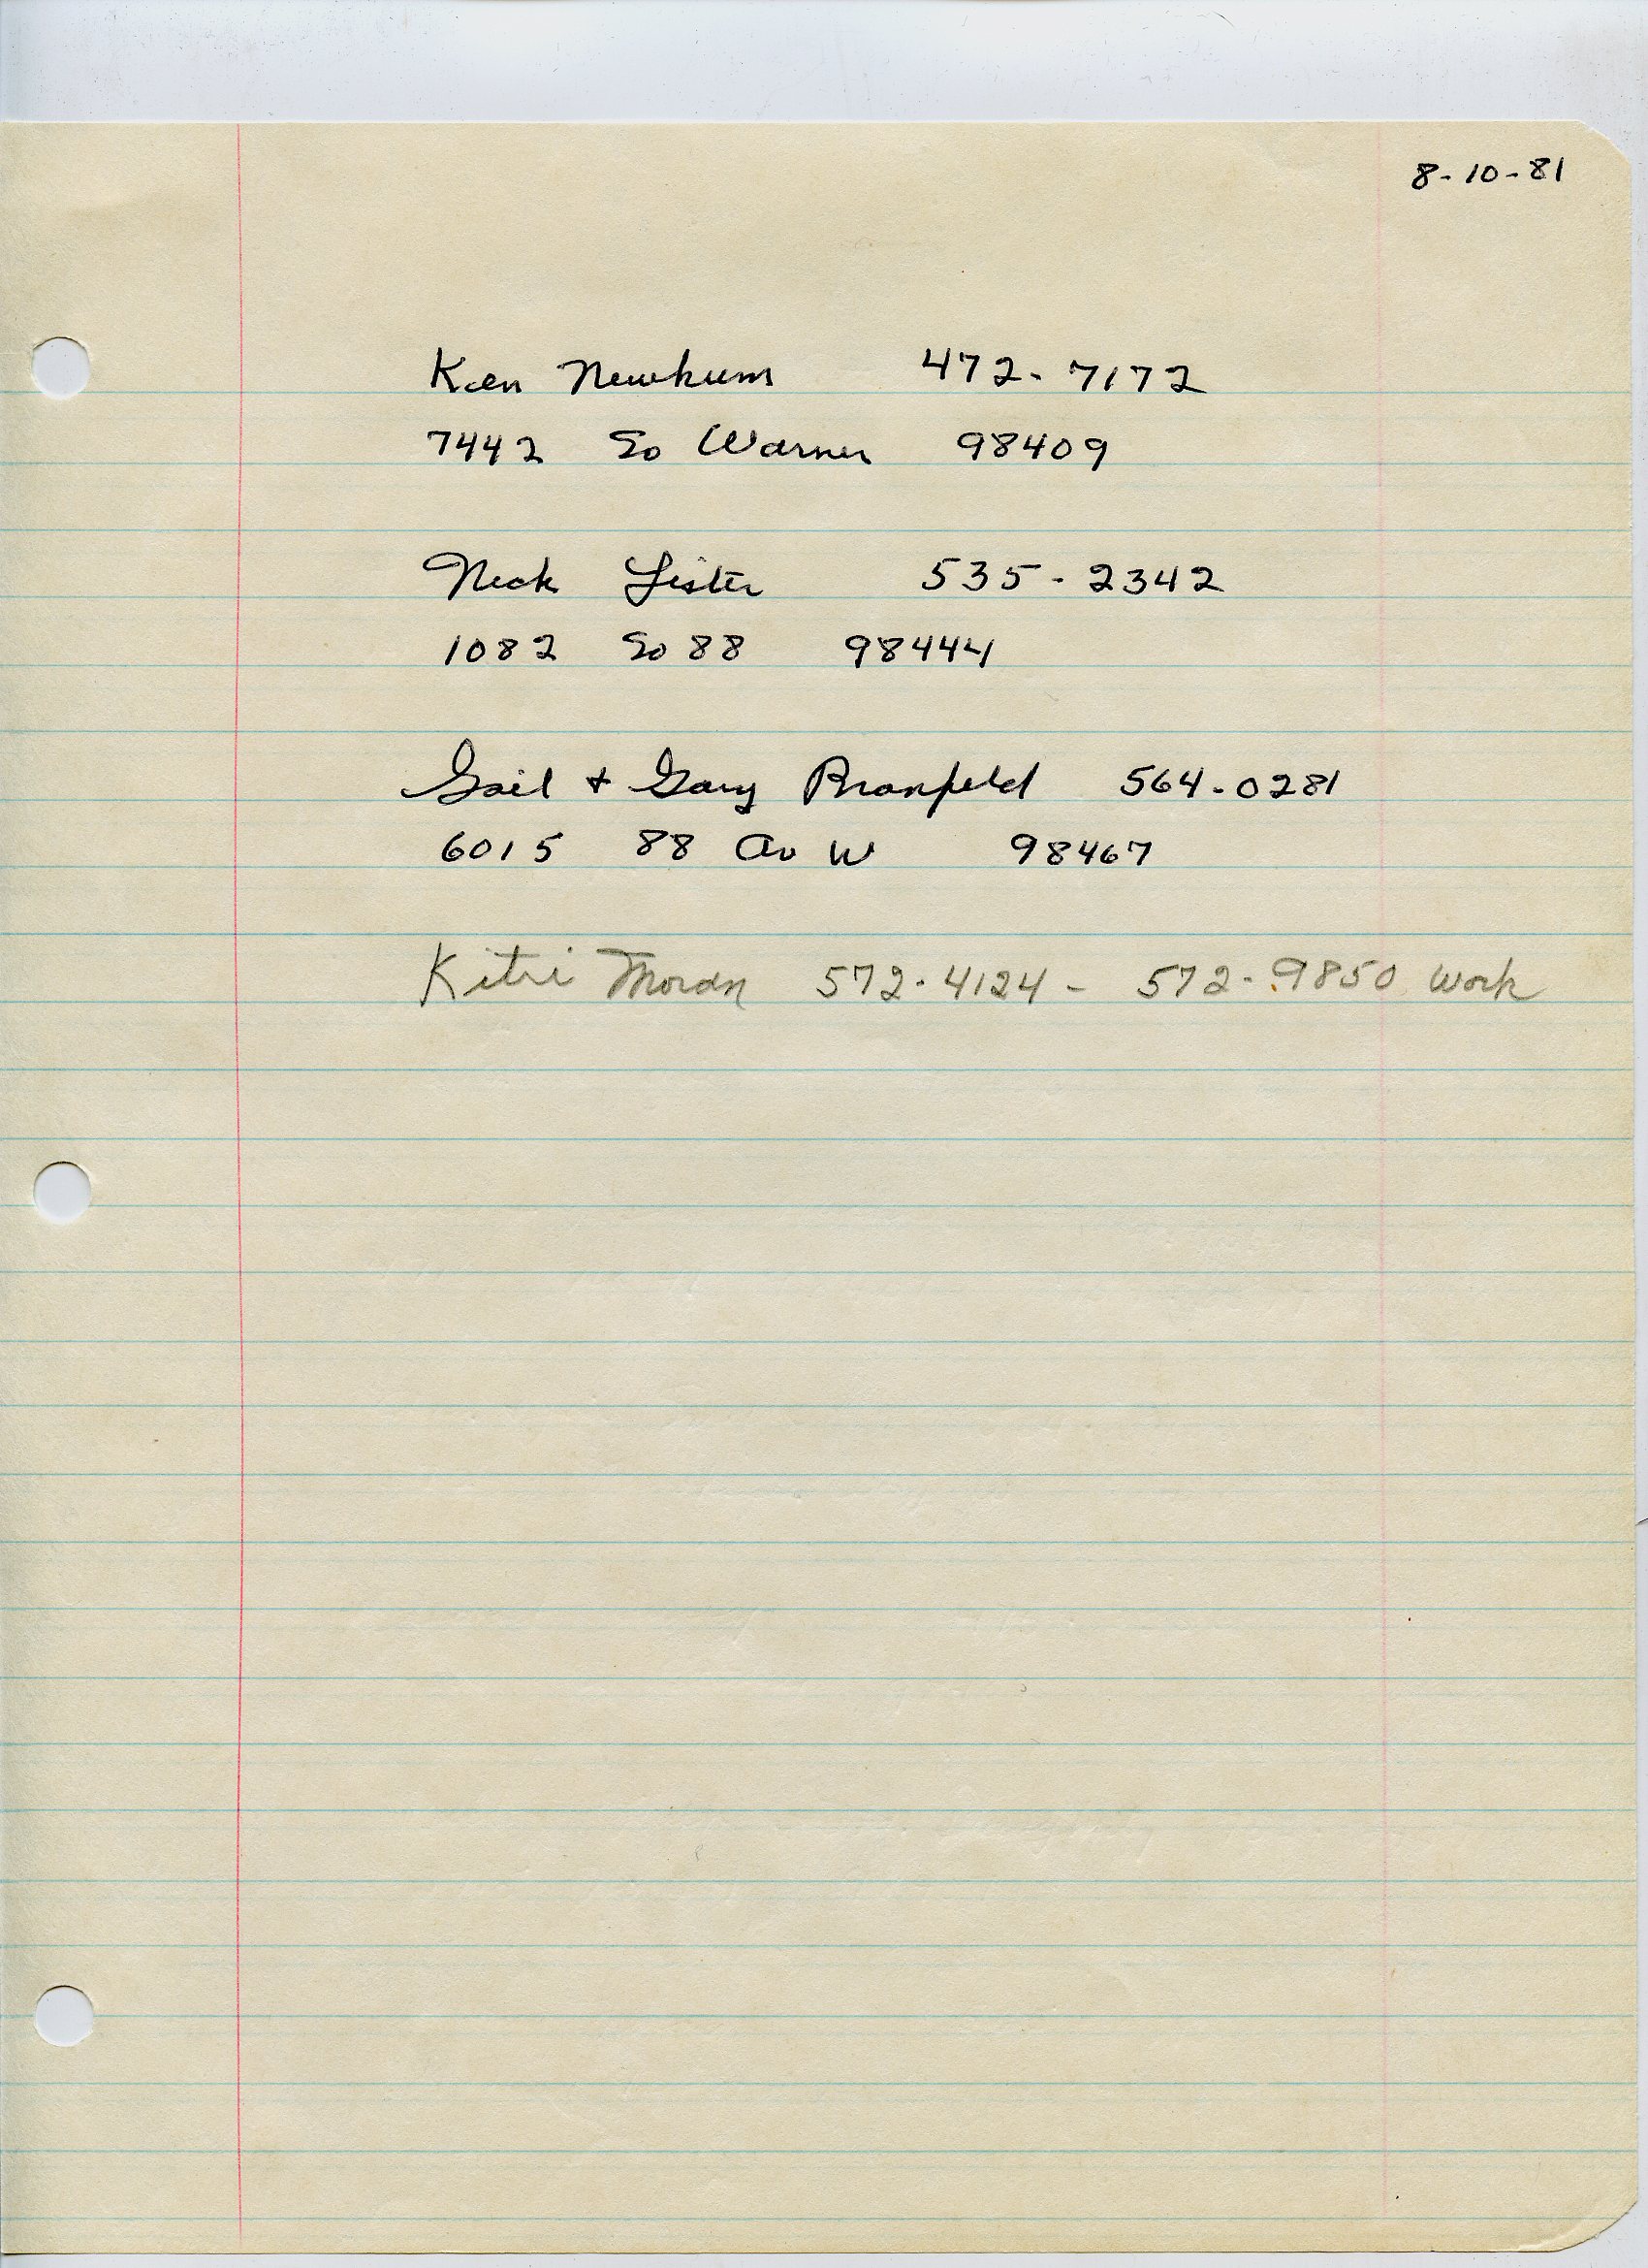 8-10-81
Ken Newkum 472-7172
7442 So Warner 98409
Nick Lister 535-2342
1082 So 88 98444
Gail + Gary Branfeld 564-0281
6015 88 Av W 98467
Kitri Moran 572-4124 - 572-9850 Work